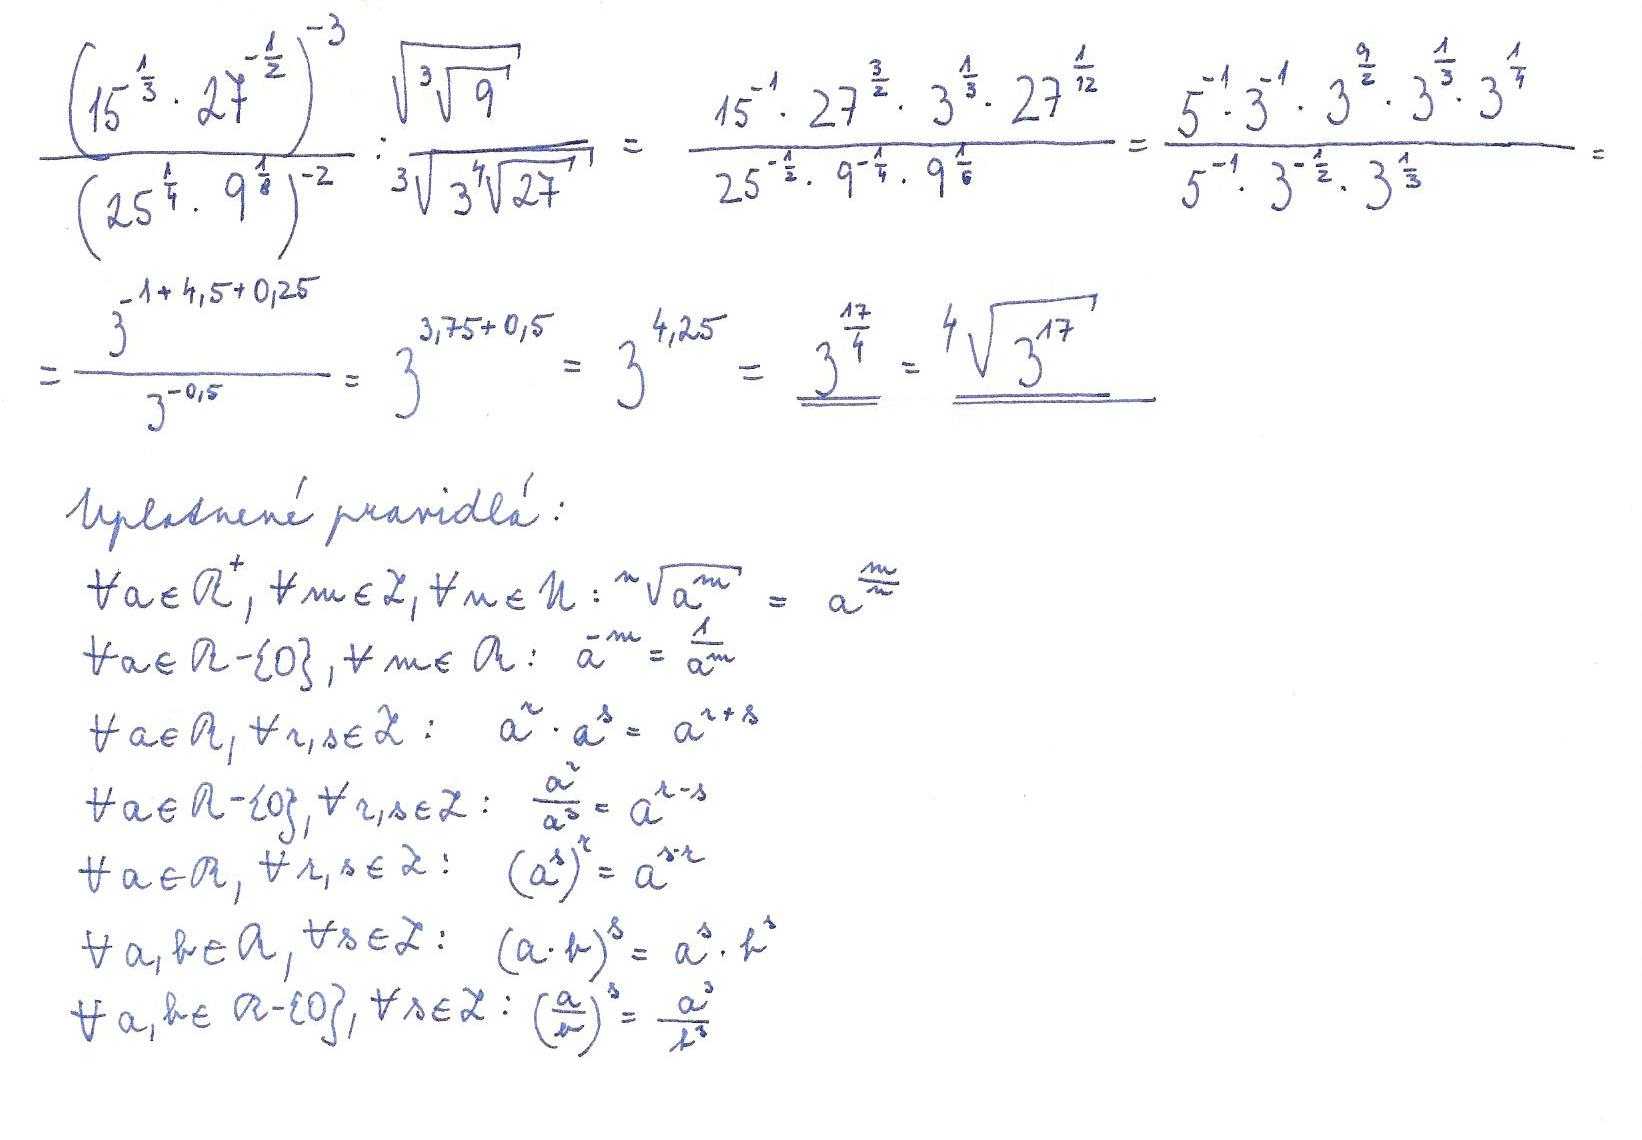 (15^{1/3} · 27^{-1/2})^{-3} / (25^{1/4} · 9^{1/8})^{-2} : √(∛9) / ∛(3 ∜27) = 15^{-1} · 27^{3/2} · 3^{1/3} · 27^{1/12} / 25^{-1/2} · 9^{-1/4} · 9^{1/6} = 5^{-1} · 3^{-1} · 3^{9/2} · 3^{1/3} · 3^{1/4} / 5^{-1} · 3^{-1/2} · 3^{1/3} =
= 3^{-1+4,5+0,25} / 3^{-0,5} = 3^{3,75+0,5} = 3^{4,25} = 3^{17/4} = ∜(3^{17})
Uplatnené pravidlá:
∀a∈R⁺, ∀m∈Z, ∀n∈N: ⁿ√(a^m) = a^{m/n}
∀a∈R-{0}, ∀m∈R: a^{-m} = 1/a^m
∀a∈R, ∀r,s∈Z: a^r · a^s = a^{r+s}
∀a∈R-{0}, ∀r,s∈Z: a^r/a^s = a^{r-s}
∀a∈R, ∀r,s∈Z: (a^s)^r = a^{s·r}
∀a,b∈R, ∀s∈Z: (a·b)^s = a^s · b^s
∀a,b∈R-{0}, ∀s∈Z: (a/b)^s = a^s/b^s